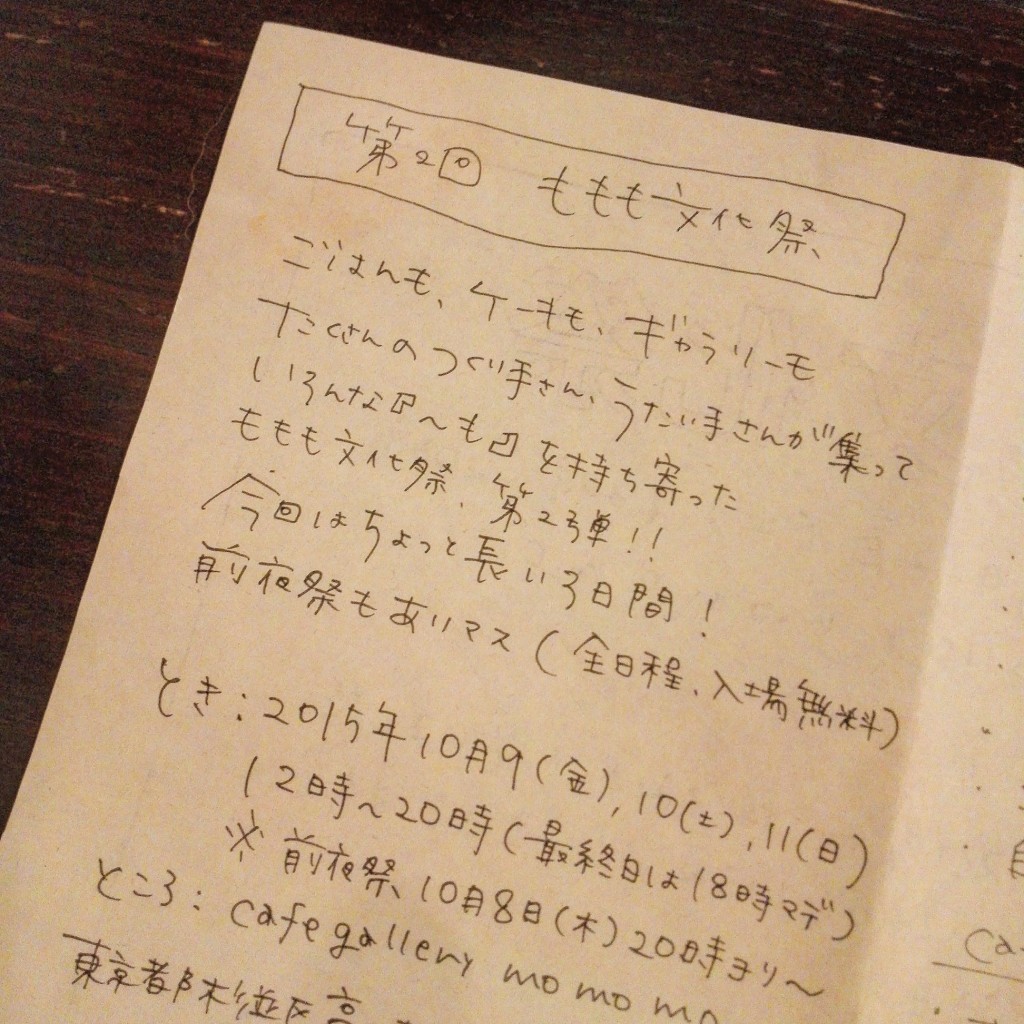 第2回 ももも文化祭
ごはんも、ケーキも、ギャラリーも
たくさんのつくり手さん、うたい手さんが集って
いろんな『〜も』を持ち寄った
ももも文化祭、第2弾!!
今回はちょっと長い3日間!
前夜祭もありマス(全日程、入場無料)
とき:2015年10月9(金),10(土),11(日)
12時〜20時(最終日は18時マデ)
※前夜祭 10月8日(木)20時ヨリ〜
ところ:cafe gallery mo mo mo
東京都杉並区高